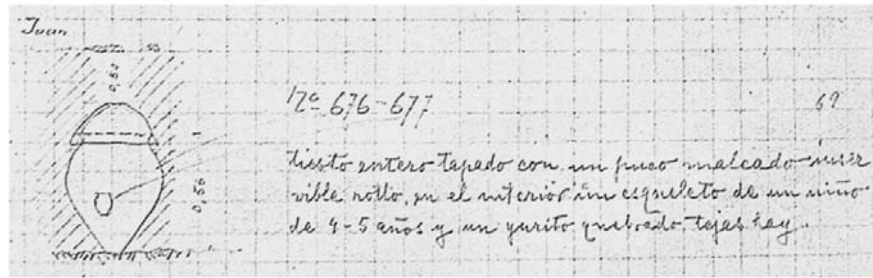 Juan
0,50
Nº 676-677 69
tiesto entero tapado con un puco malcado inser
vible rotto, en el interior un esqueleto de un niño
de 4-5 años y un yurito quebrado tejas hay.
0,56